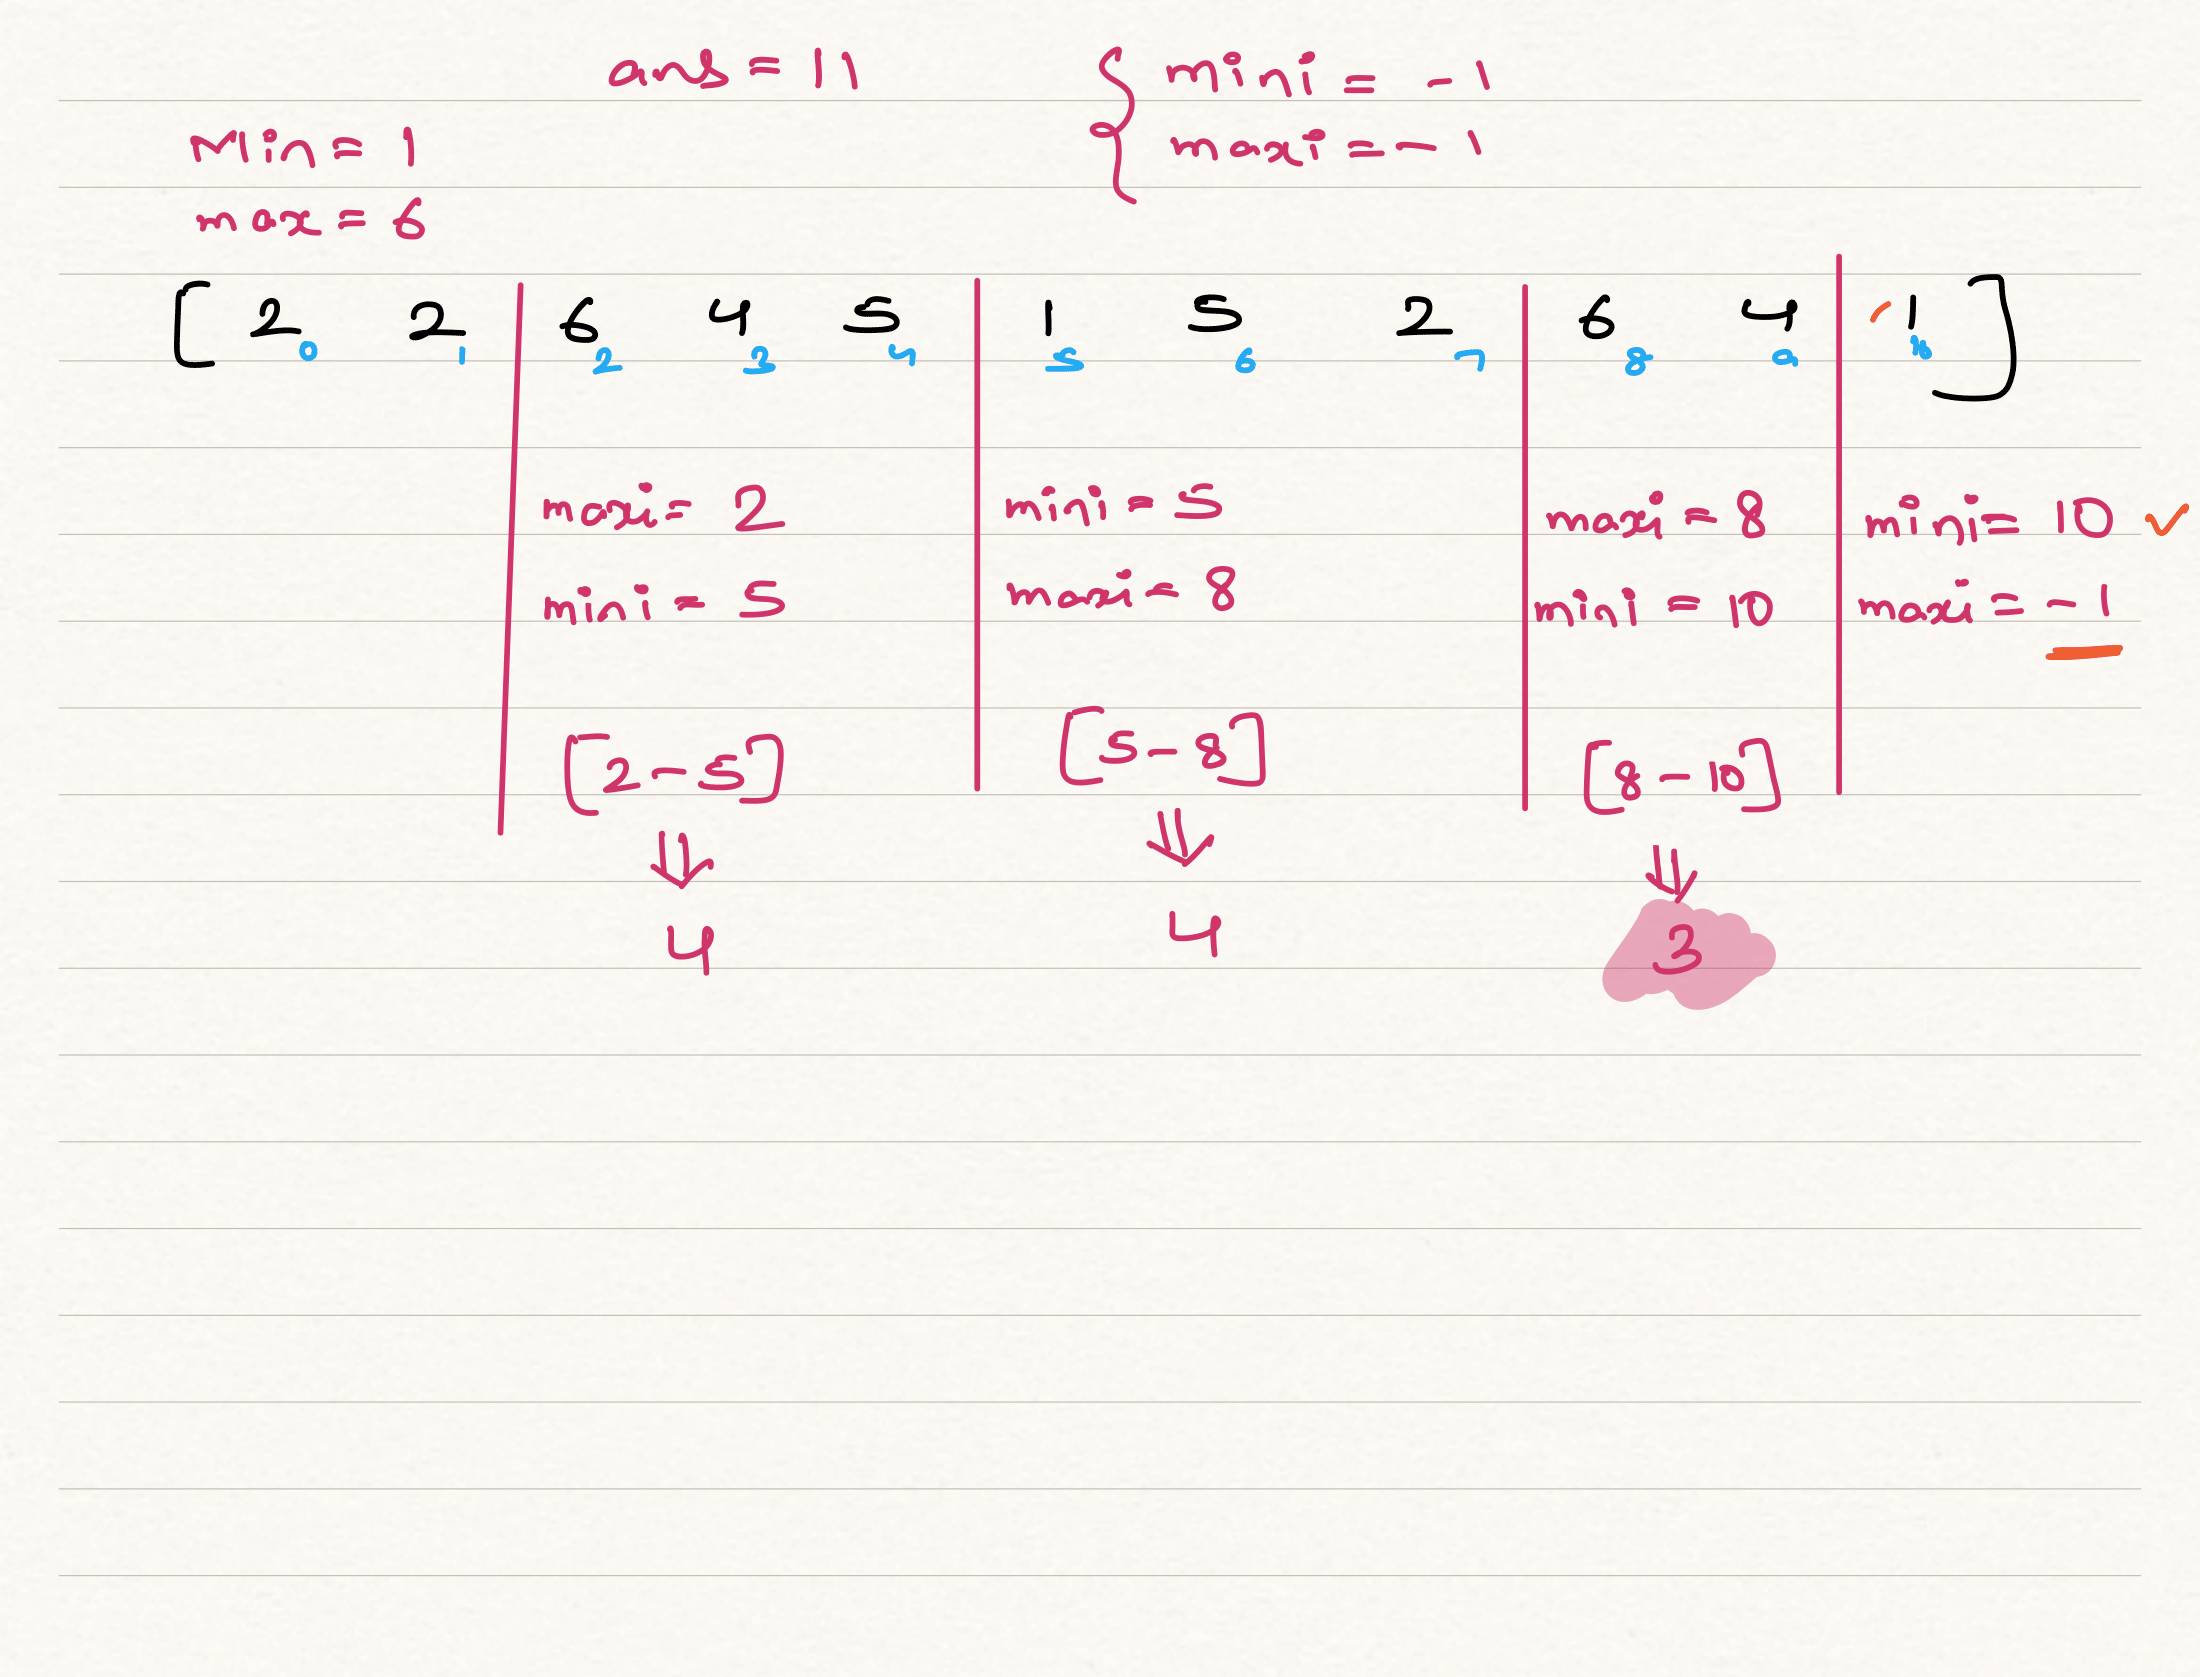 ans = 11
mini = -1
maxi = -1
Min = 1
max = 6
[ 2 2 6 4 5 1 5 2 6 4 1 ]
0 1 2 3 4 5 6 7 8 9 10
maxi = 2
mini = 5
[2 - 5]
4
mini = 5
maxi = 8
[5 - 8]
4
maxi = 8
mini = 10
[8 - 10]
3
mini = 10 ✓
maxi = -1